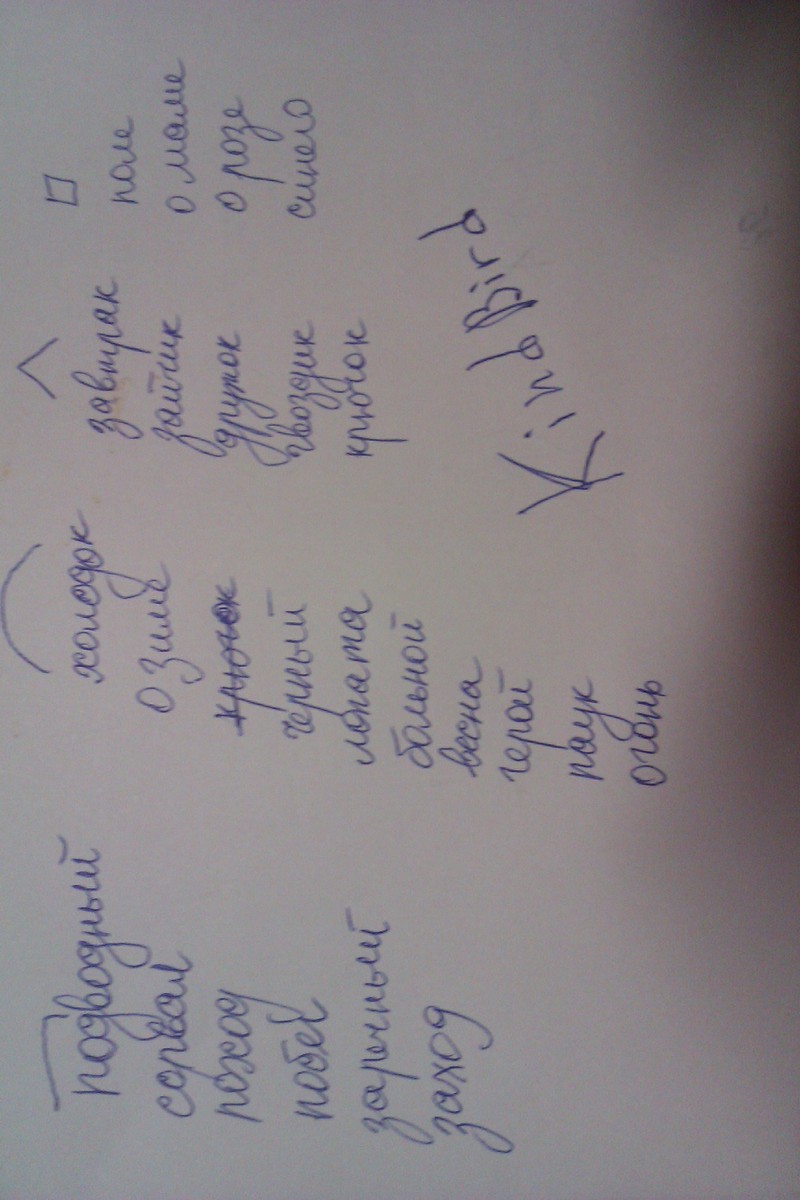 подводный
сорвал
поход
побег
заречный
заход
холодок
о зиме
крючок
черный
лопата
больной
весна
герой
паук
огонь
завтрак
зайчик
дружок
гвоздик
крючок
поле
о маме
о розе
синего
KindBird